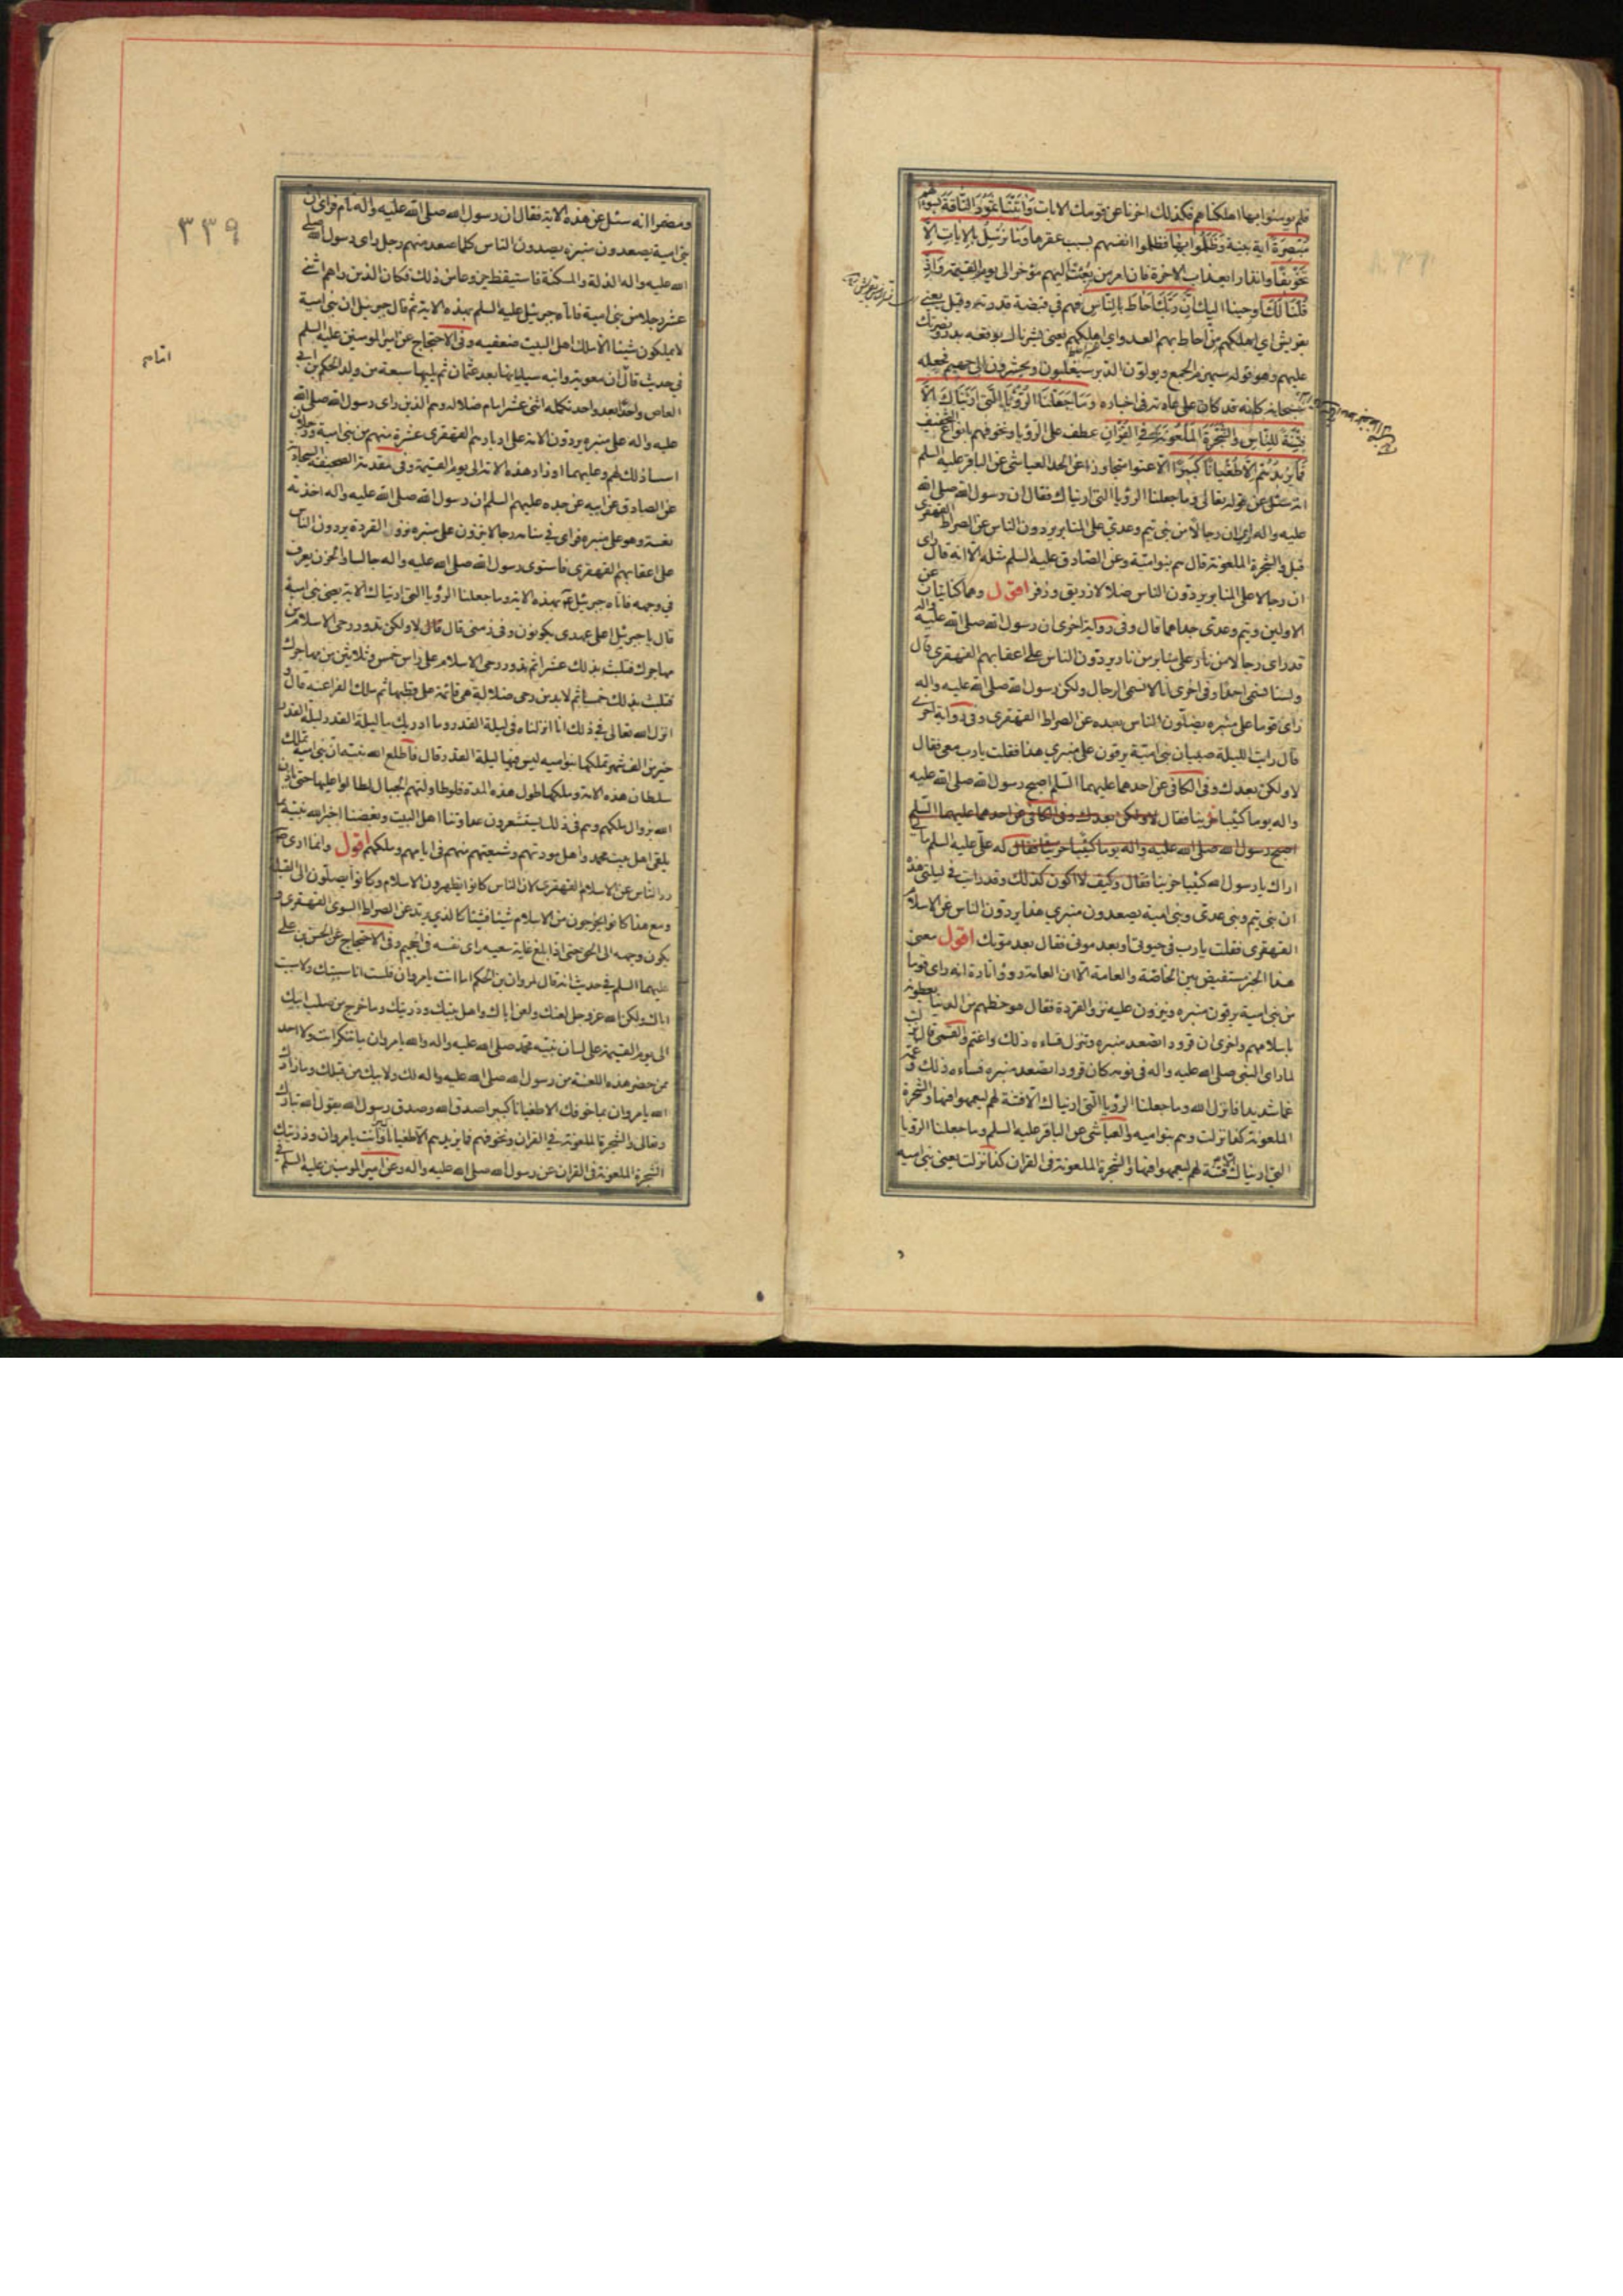 فلم يؤمنوا بها اهلكناهم فكذلك اخرنا عن قومك الايات وَاتَيْنَا ثَمُودَ النَّاقَةَ
مُبْصِرَةً اية بينة وَظَلَمُوا بِهَا فظلموا انفسهم بسبب عقرها وَمَا نُرْسِلُ بِالاياتِ اِلّا
تَخْوِيفًا وانذارا بعذاب الاخرة فان امر من بعثت اليهم مؤخر الى يوم القيمة وَاِذْ
قُلْنَا لَكَ اوحينا اليك اِنَّ رَبَّكَ اَحَاطَ بِالنَّاسِ فهم في قبضة قدرته وقيل يعنى
بقريش اي اهلكهم من احاط بهم العدو اي اهلكهم يعنى بشرناك بوقعة بدر ونصرتك
عليهم وهو قوله سيهزم الجمع ويولون الدبر سيغلبون ويحشرون الى جهنم فجعله
سبحانه كانه قد كان على عادته في اخباره وَمَا جَعَلْنَا الرُّؤيَا الَّتي اَرَيْنَاكَ اِلّا
فِتْنَةً لِلنَّاسِ وَالشَّجَرَةَ المَلْعُونَةَ فِي القُرْآنِ عطف على الرؤيا ونخوفهم بانواع التخويف
فَمَا يَزِيدُهُمْ اِلّا طُغْيَانًا كَبِيرًا الا عتوا متجاوزا عن الحد العياشي عن الباقر عليه السلم
انه سئل عن قوله تعالى وما جعلنا الرؤيا التي اريناك فقال ان رسول الله صلى الله
عليه واله ارى ان رجالا من بني تيم وعدي على المنابر يردون الناس عن الصراط القهقرى
قيل والشجرة الملعونة قال هم بنو امية وعن الصادق عليه السلم مثله الا انه قال راى
ان رجالا على المنابر يردون الناس ضلالا زريق وزفر اقول وهما كنايتان عن
الاولين وتيم وعدي جداهما قال وفي رواية اخرى ان رسول الله صلى الله عليه واله
قد راى رجالا من نار على منابر من نار يردون الناس على اعقابهم القهقرى قال
ولسنا نسمي احدا وفي اخرى انا لا نسمي الرجال ولكن رسول الله صلى الله عليه واله
راى قوما على منبره يضلون الناس بعده عن الصراط القهقرى وفي رواية اخرى
قال رايت الليلة صبيان بني امية يرقون على منبري هذا فقلت يا رب معي فقال
لا ولكن بعدك وفي الكافي عن احدهما عليهما السلم اصبح رسول الله صلى الله عليه
واله يوما كئيبا حزينا فقال لا ولكن بعدك وفي الكافي عن احدهما عليهما السلم
اصبح رسول الله صلى الله عليه واله يوما كئيبا حزينا فقال له علي عليه السلم ما لي
اراك يا رسول الله كئيبا حزينا فقال وكيف لا اكون كذلك وقد رايت في ليلتي هذه
ان بني تيم وبني عدي وبني امية يصعدون منبري هذا يردون الناس عن الاسلام
القهقرى فقلت يا رب في حيوتي او بعد موتي فقال بعد موتك اقول معنى
هذا الخبر مستفيض بين الخاصة والعامة الا ان العامة رووا تارة انه راى قوما
من بني امية يرقون منبره وينزون عليه نزو القردة فقال هو حظهم من الدنيا يعطونه
باسلامهم واخرى ان قرودا تصعد منبره وتنزل فساءه ذلك واغتم والقمي قال نزلت
لما راى النبي صلى الله عليه واله في نومه كان قرودا تصعد منبره فساءه ذلك وغمه
غما شديدا فانزل الله وما جعلنا الرؤيا التي اريناك الا فتنة لهم ليعمهوا فيها والشجرة
الملعونة كذا نزلت وهم بنو اميه والعياشي عن الباقر عليه السلم وما جعلنا الرؤيا
التي اريناك الا فتنة لهم ليعمهوا فيها والشجرة الملعونة في القرآن كذا نزلت يعنى بني اميه
٣٣٩
ومضمرا انه سئل عن هذه الاية فقال ان رسول الله صلى الله عليه واله نام فراى ان
بني امية يصعدون منبره يصدون الناس كلما صعد منهم رجل راى رسول الله صلى
الله عليه واله الذلة والمسكنة فاستيقظ جزوعا من ذلك فكان الذين راهم اثني
عشر رجلا من بني امية فاتاه جبرئيل عليه السلم بهذه الاية ثم قال جبرئيل ان بني امية
لا يملكون شيئا الا ملك اهل البيت ضعفيه وفي الاحتجاج عن امير المؤمنين عليه السلم
في حديث قال ان معوية وابنه سيليانها بعد عثمان ثم يليها سبعة من ولد الحكم بن ابي
العاص واحدا بعد واحد تكمله اثني عشر امام ضلالة وهم الذين راى رسول الله صلى الله
عليه واله على منبره يردون الامة على ادبارهم القهقرى عشرة منهم من بني امية ورجلان
اسسا ذلك لهم وعليهما اوزار هذه الامة الى يوم القيمة وفي مقدمة الصحيفة السجادية
عن الصادق عن ابيه عن جده عليهم السلم ان رسول الله صلى الله عليه واله اخذته
نعسة وهو على منبره فراى في منامه رجالا ينزون على منبره نزو القردة يردون الناس
على اعقابهم القهقرى فاستوى رسول الله صلى الله عليه واله جالسا والحزن يعرف
في وجهه فاتاه جبرئيل بهذه الاية وما جعلنا الرؤيا التي اريناك الاية يعنى بني امية
قال يا جبرئيل اعلى عهدي يكونون وفي زمني قال لا ولكن تدور رحى الاسلام من
مهاجرك فتلبث بذلك عشرا ثم تدور رحى الاسلام على راس خمس وثلاثين من مهاجرك
فتلبث بذلك خمسا ثم لا بد من رحى ضلالة هي قائمة على قطبها ثم ملك الفراعنة قال و
انزل الله تعالى في ذلك انا انزلناه في ليلة القدر وما ادريك ما ليلة القدر ليلة القدر
خير من الف شهر تملكها بنو اميه ليس فيها ليلة القدر قال فاطلع الله نبيه ان بني امية تملك
سلطان هذه الامة وملكها طول هذه المدة فلو طاولتهم الجبال لطالوا عليها حتى ياذن
الله بزوال ملكهم وهم في ذلك يستشعرون عداوتنا اهل البيت وبغضنا اخبر الله نبيه بما
يلقى اهل بيت محمد واهل مودتهم وشيعتهم منهم في ايامهم وملكهم اقول وانما ارى
رد الناس عن الاسلام القهقرى لان الناس كانوا يظهرون الاسلام وكانوا يصلون الى القبلة
ومع هذا كانوا يخرجون من الاسلام شيئا فشيئا كالذي يرتد عن الصراط السوي القهقرى و
يكون وجهه الى الحق حتى اذا بلغ غاية سعيه راى نفسه في الجحيم وفي الاحتجاج عن الحسن بن علي
عليهما السلم في حديث انه قال لمروان بن الحكم اما انت يا مروان فلست انا سببتك ولا سببت
اباك ولكن الله عز وجل لعنك ولعن اباك واهل بيتك وذريتك وما خرج من صلب ابيك
الى يوم القيمة على لسان نبيه محمد صلى الله عليه واله والله يا مروان ما تنكر انت ولا احد
ممن حضر هذه اللعنة من رسول الله صلى الله عليه واله لك ولابيك من قبلك وما زادك
الله يا مروان بما خوفك الا طغيانا كبيرا صدق الله وصدق رسوله يقول الله تبارك
وتعالى والشجرة الملعونة في القرآن ونخوفهم فما يزيدهم الا طغيانا كبيرا وانت يا مروان وذريتك
الشجرة الملعونة في القرآن عن رسول الله صلى الله عليه واله وعن امير المؤمنين عليه السلم في